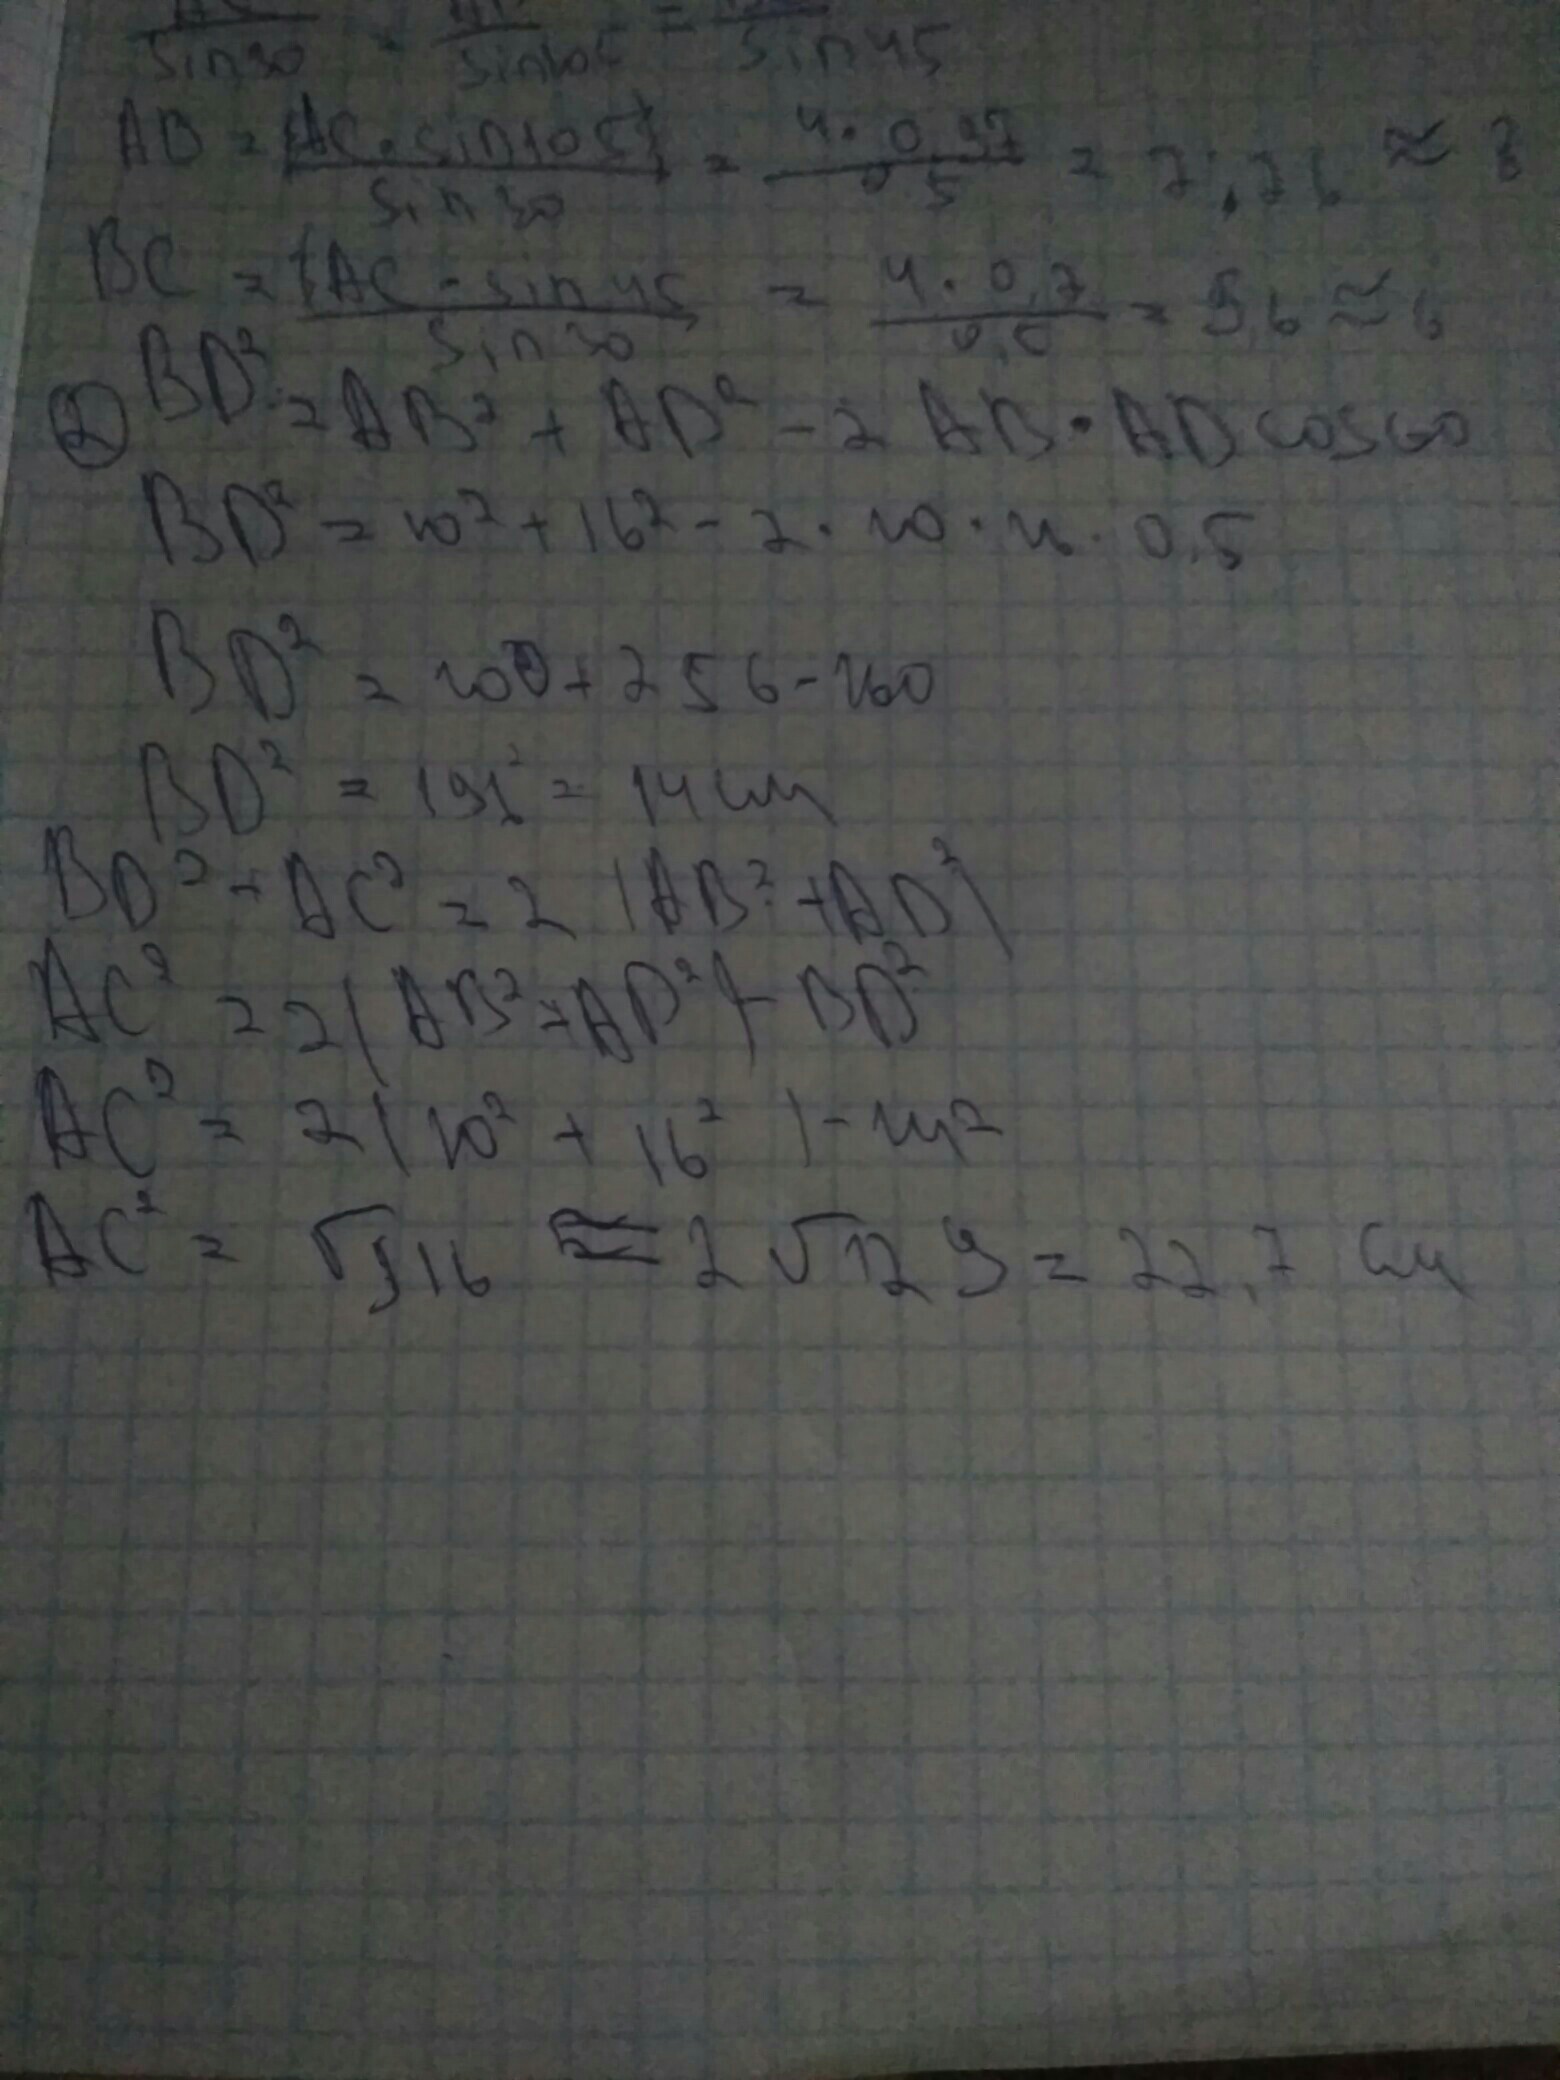 sin30 = sin105 = sin45
AB = (AC · sin105) / sin30 = 4 · 0,97 / 0,5 = 7,76 ≈ 8
BC = (AC · sin45 / sin30 = 4 · 0,7 / 0,5 = 5,6 ≈ 6
② BD² = AB² + AD² - 2 AB · AD cos60
BD² = 10² + 16² - 2 · 10 · 16 · 0,5
BD² = 100 + 256 - 160
BD² = 196 = 14 см
BD² + AC² = 2 (AB² + AD²)
AC² = 2 (AB² + AD²) - BD²
AC² = 2 (10² + 16²) - 14²
AC² = √516 = 2 √129 = 22,7 см